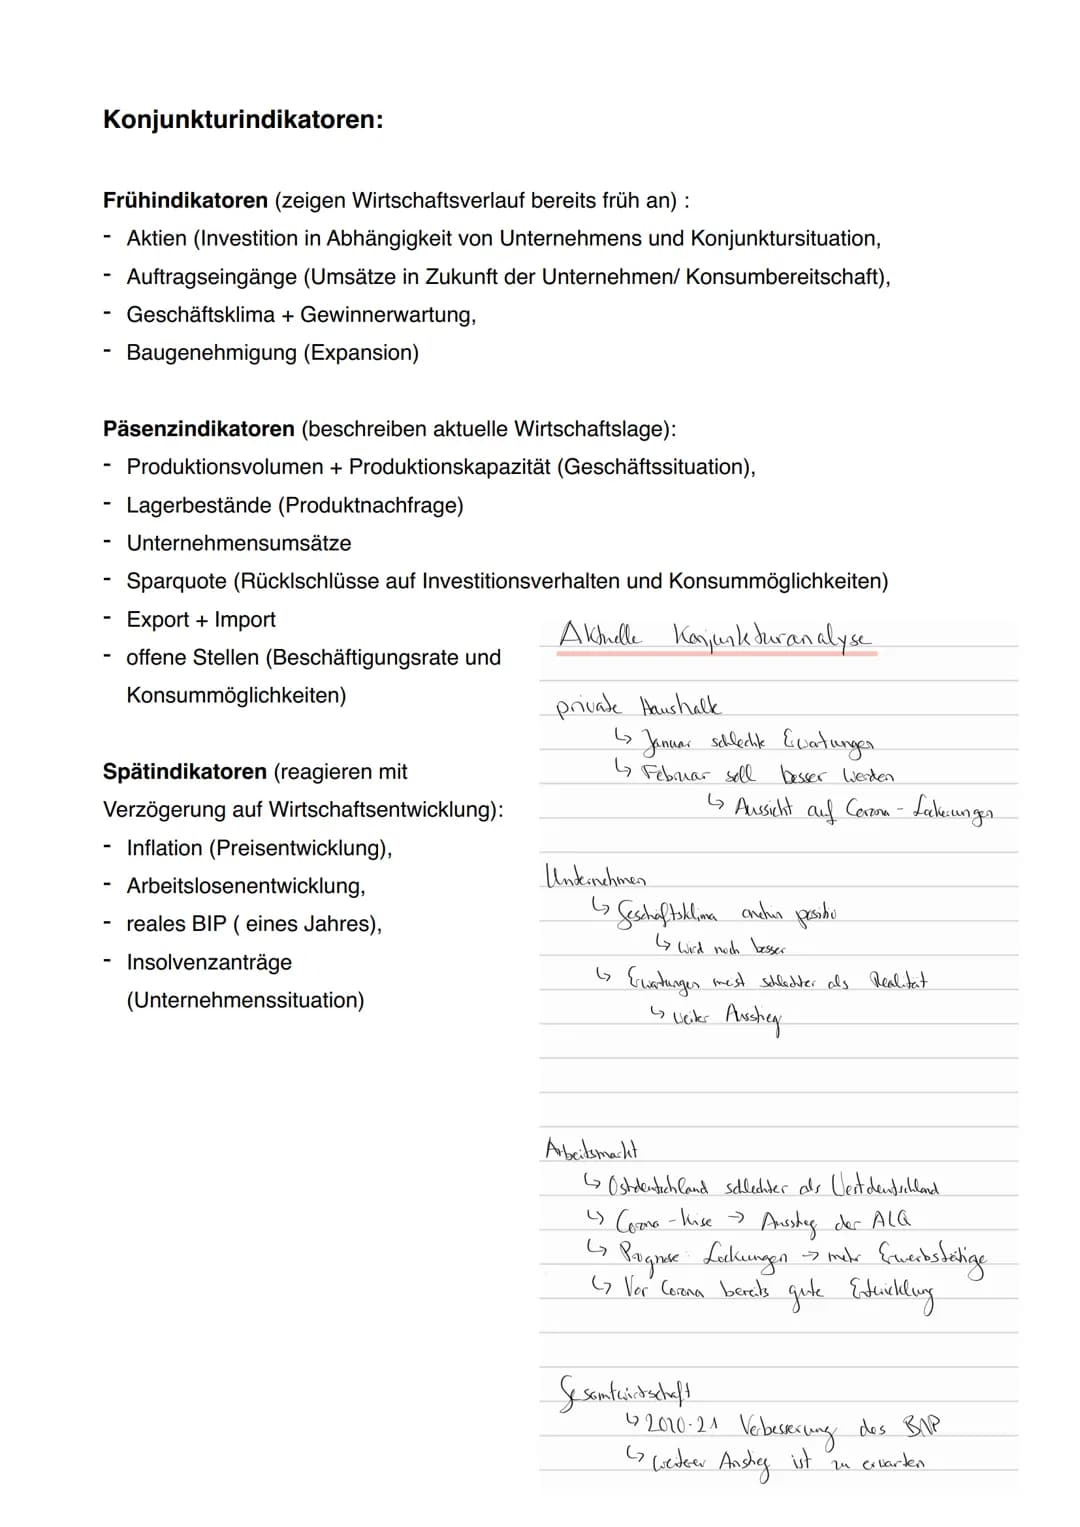 Konjunkturindikatoren:
Frühindikatoren (zeigen Wirtschaftsverlauf bereits früh an) :
- Aktien (Investition in Abhängigkeit von Unternehmens und Konjunktursituation,
- Auftragseingänge (Umsätze in Zukunft der Unternehmen/ Konsumbereitschaft),
- Geschäftsklima + Gewinnerwartung,
- Baugenehmigung (Expansion)
Päsenzindikatoren (beschreiben aktuelle Wirtschaftslage):
- Produktionsvolumen + Produktionskapazität (Geschäftssituation),
- Lagerbestände (Produktnachfrage)
- Unternehmensumsätze
- Sparquote (Rücklschlüsse auf Investitionsverhalten und Konsummöglichkeiten)
- Export + Import
- offene Stellen (Beschäftigungsrate und
Konsummöglichkeiten)
Spätindikatoren (reagieren mit
Verzögerung auf Wirtschaftsentwicklung):
- Inflation (Preisentwicklung),
- Arbeitslosenentwicklung,
- reales BIP ( eines Jahres),
- Insolvenzanträge
(Unternehmenssituation)
Aktuelle Konjunkturanalyse
private Haushalte
↳ Januar schlechte Erwartungen
↳ Februar soll besser werden
↳ Aussicht auf Corona - Lockerungen
Unternehmen
↳ Geschäftsklima positiv
↳ wird noch besser
↳ Erwartungen meist schlechter als Realität
↳ weiter Anstieg
Arbeitsmarkt
↳ Ostdeutschland schlechter als Westdeutschland
↳ Corona - Krise → Anstieg der ALQ
↳ Prognose: Lockrungen → mehr Erwerbstätige
↳ Vor Corona bereits gute Entwicklung
Gesamtwirtschaft
↳ 2020-21 Verbesserung des BIP
↳ weiterer Anstieg ist zu erwarten